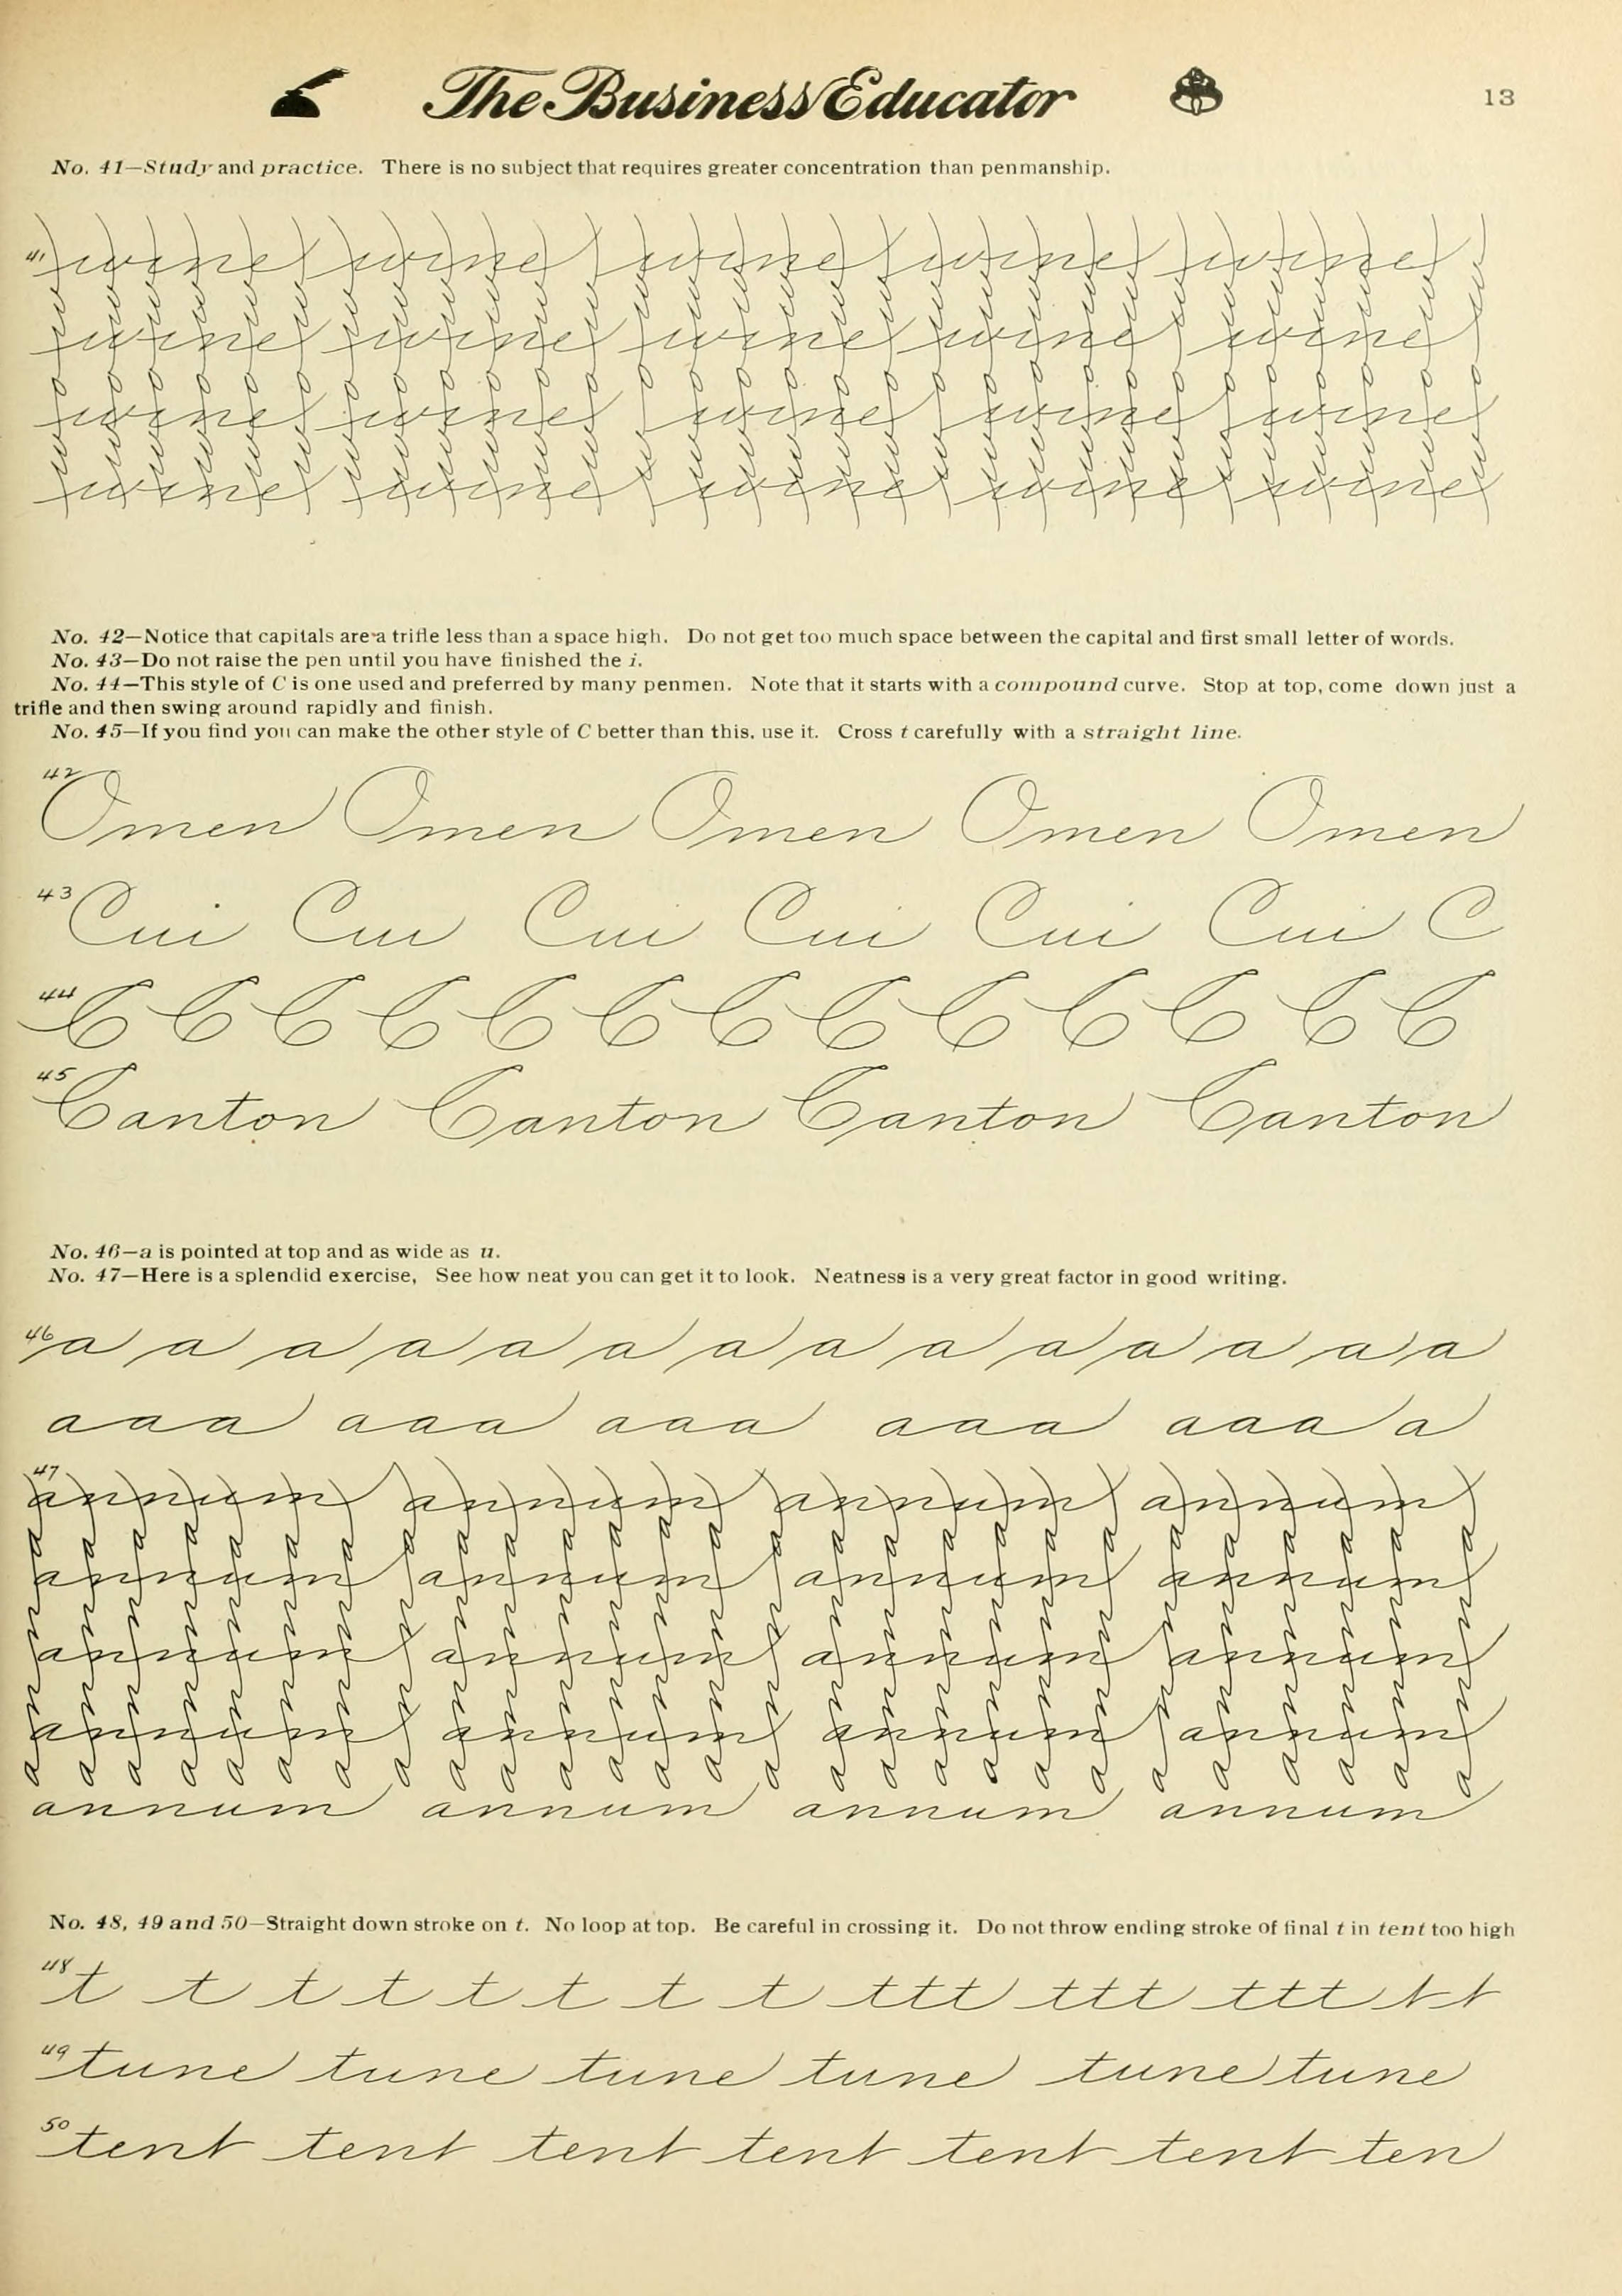 The Business Educator 13
No. 41—Study and practice. There is no subject that requires greater concentration than penmanship.
41 wine wine wine wine wine
wine wine wine wine wine
wine wine wine wine wine
wine wine wine wine wine
No. 42—Notice that capitals are a trifle less than a space high. Do not get too much space between the capital and first small letter of words.
No. 43—Do not raise the pen until you have finished the i.
No. 44—This style of C is one used and preferred by many penmen. Note that it starts with a compound curve. Stop at top, come down just a
trifle and then swing around rapidly and finish.
No. 45—If you find you can make the other style of C better than this, use it. Cross t carefully with a straight line.
42 Omen Omen Omen Omen Omen
43 Cui Cui Cui Cui Cui Cui C
44 C C C C C C C C C C C C C
45 Canton Canton Canton Canton
No. 46—a is pointed at top and as wide as u.
No. 47—Here is a splendid exercise, See how neat you can get it to look. Neatness is a very great factor in good writing.
46 a a a a a a a a a a a a a a
aaa aaa aaa aaa aaa a
47 annum annum annum annum
annum annum annum annum
annum annum annum annum
annum annum annum annum
annum annum annum annum
No. 48, 49 and 50—Straight down stroke on t. No loop at top. Be careful in crossing it. Do not throw ending stroke of final t in tent too high
48 t t t t t t t t ttt ttt ttt t t
49 tune tune tune tune tune tune
50 tent tent tent tent tent tent ten